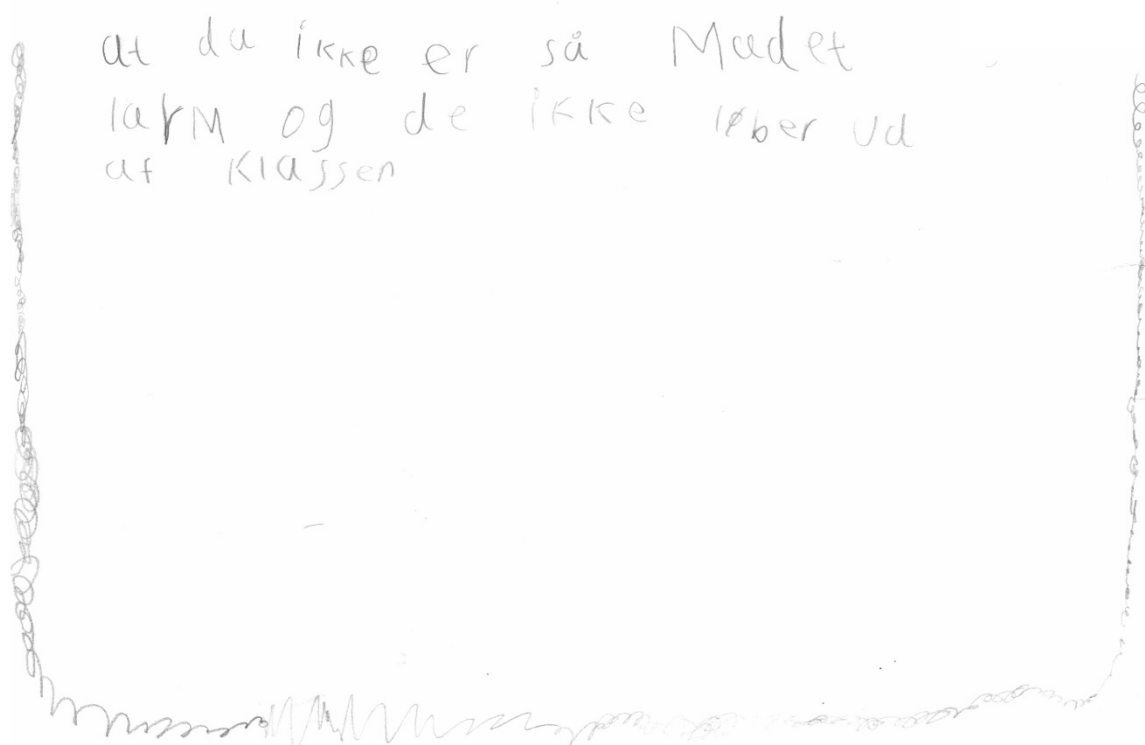 at da ikke er så Madet
larM og de ikke løber ud
af klassen